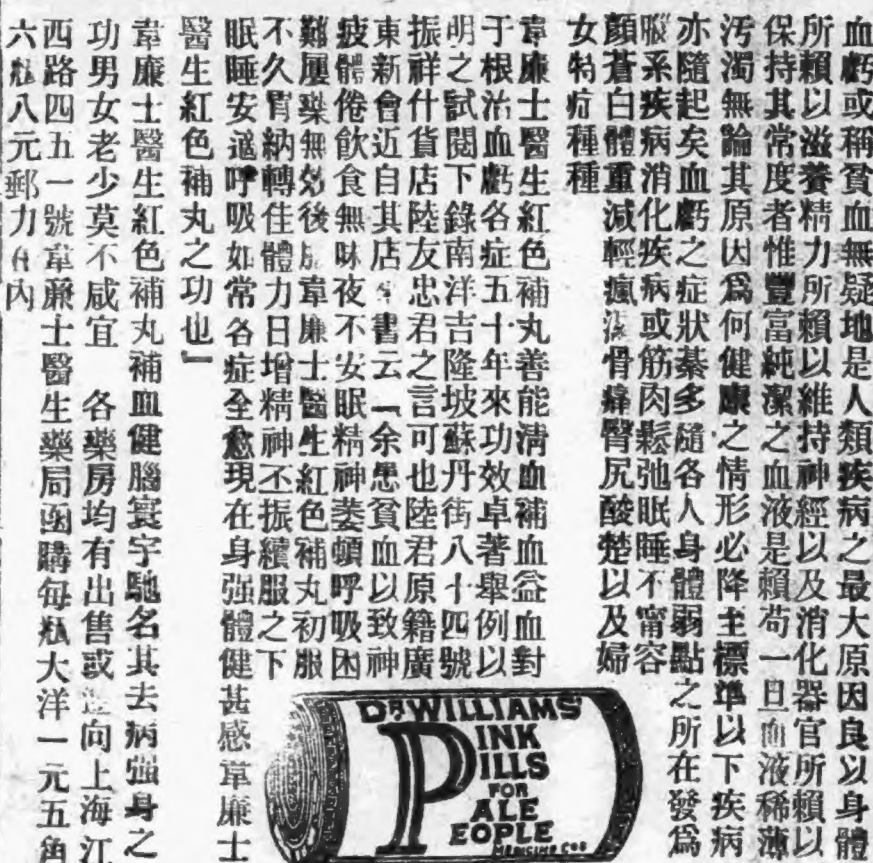 血虧或稱貧血無疑地是人類疾病之最大原因良以身體
所賴以滋養精力所賴以維持神經以及消化器官所賴以
保持其常度者惟豐富純潔之血液是賴苟一旦血液稀薄
汚濁無論其原因爲何健康之情形必降主標準以下疾病
亦隨起矣血虧之症狀綦多隨各人身體弱點之所在發爲
腦系疾病消化疾病或筋肉鬆弛眠睡不甯容
顏蒼白體重減輕瘋濕骨痛腎尻酸楚以及婦
女特症種種
韋廉士醫生紅色補丸善能淸血補血益血對
于根治血虧各症五十年來功效卓著舉例以
明之試閱下錄南洋吉隆坡蘇丹街八十四號
振祥什貨店陸友忠君之言可也陸君原籍廣
東新會近自其店書云「余患貧血以致神
疲體倦飲食無味夜不安眠精神萎頓呼吸困
難屢藥無效後服韋廉士醫生紅色補丸初服
不久胃納轉佳體力日增精神丕振續服之下
眠睡安適呼吸如常各症全愈現在身强體健甚感韋廉士
醫生紅色補丸之功也』
韋廉士醫生紅色補丸補血健腦寰宇馳名其去病强身之
功男女老少莫不咸宜 各藥房均有出售或向上海江
西路四五一號韋廉士醫生藥局函購每瓶大洋一元五角
六瓶八元郵力在內
DR WILLIAMS
PINK
PILLS
FOR
PALE
PEOPLE
MEDICINE CO